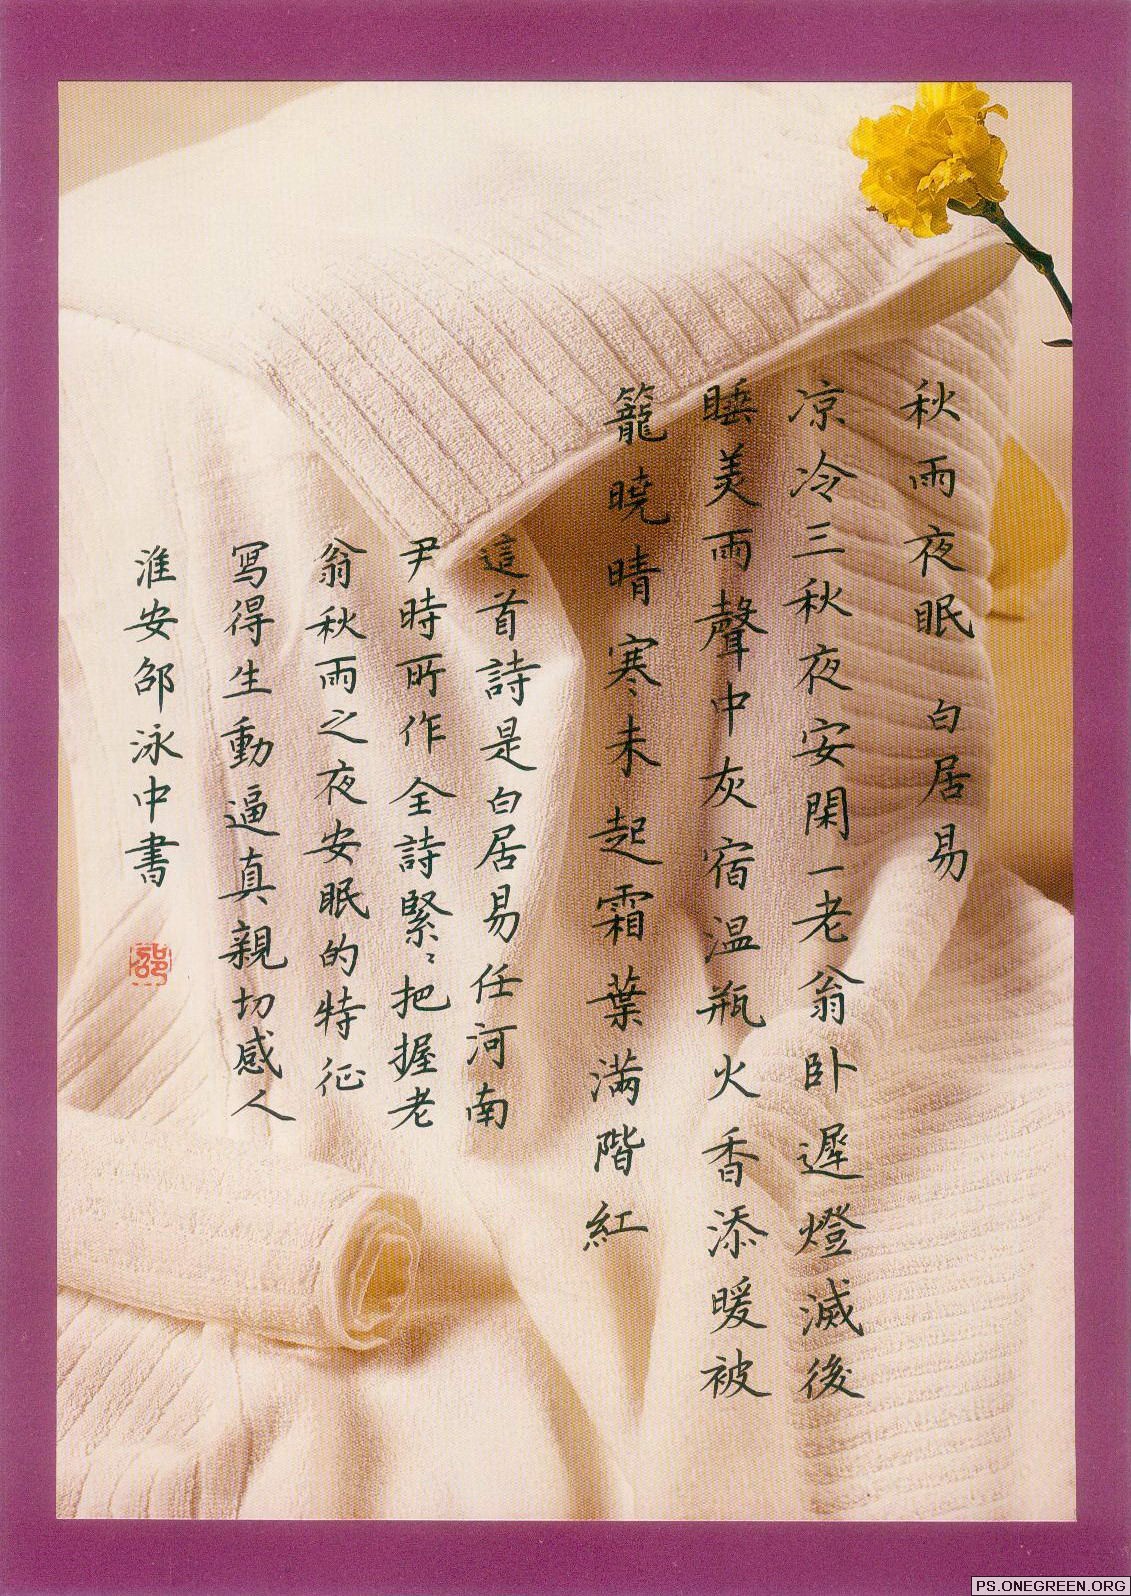 秋雨夜眠 白居易
凉冷三秋夜安閑一老翁卧遲燈滅後
睡美雨聲中灰宿温瓶火香添暖被
籠曉晴寒未起霜葉满階紅
這首詩是白居易任河南
尹時所作全詩緊緊把握老
翁秋雨之夜安眠的特征
寫得生動逼真親切感人
淮安邵泳中書
邵
PS.ONEGREEN.ORG